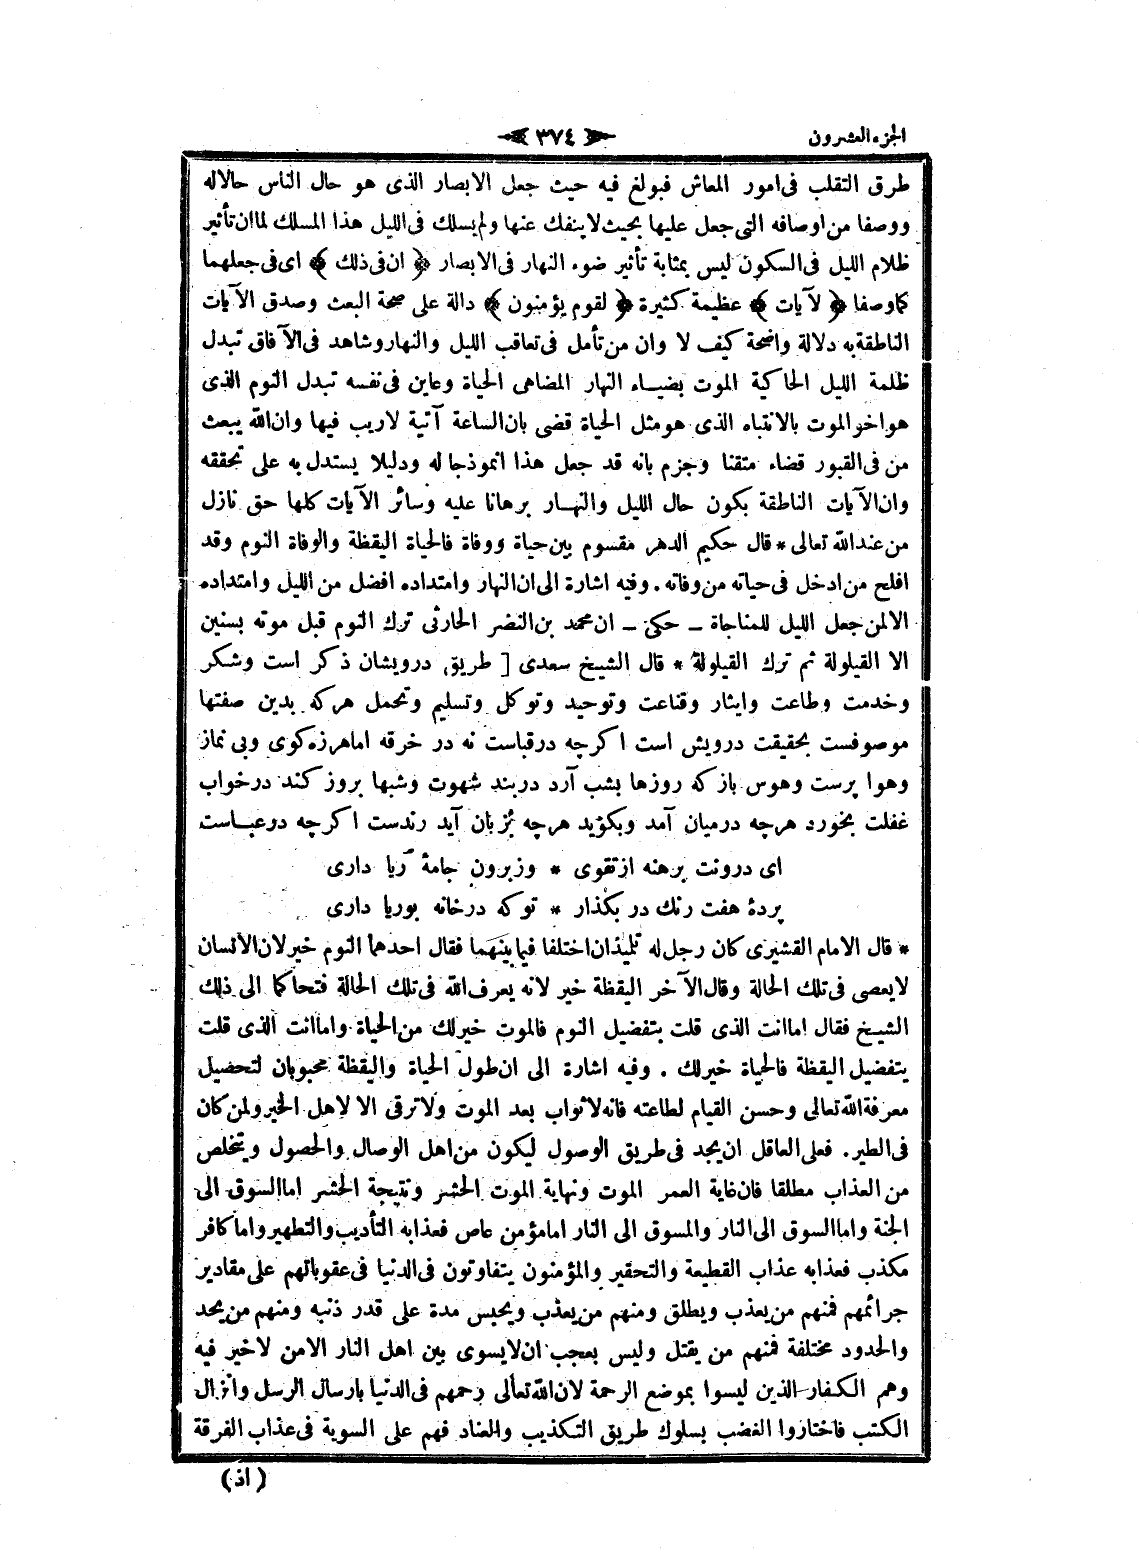 الجزء العشرون
﴿ ٣٧٤ ﴾
طرق التقلب فى امور المعاش فبولغ فيه حيث جعل الابصار الذى هو حال الناس حالاله
ووصفا من اوصافه التى جعل عليها بحيث لاينفك عنها ولم يسلك فى الليل هذا المسلك لماان تأثير
ظلام الليل فى السكون ليس بمثابة تأثير ضوء النهار فى الابصار ﴿ ان فى ذلك ﴾ اى فى جعلهما
كماوصفا ﴿ لآيات ﴾ عظيمة كثيرة ﴿ لقوم يؤمنون ﴾ دالة على صحة البعث وصدق الآيات
الناطقة به دلالة واضحة كيف لا وان من تأمل فى تعاقب الليل والنهار وشاهد فى الآفاق تبدل
ظلمة الليل الحاكية الموت بضياء النهار المضاهى الحياة وعاين فى نفسه تبدل النوم الذى
هواخو الموت بالانتباه الذى هو مثل الحياة قضى بان الساعة آتية لاريب فيها وان الله يبعث
من فى القبور قضاء متقنا وجزم بانه قد جعل هذا انموذجا له ودليلا يستدل به على تحققه
وان الآيات الناطقة بكون حال الليل والنهار برهانا عليه وسائر الآيات كلها حق نازل
من عندالله تعالى * قال حكيم الدهر مقسوم بين حياة ووفاة فالحياة اليقظة والوفاة النوم وقد
افلح من ادخل فى حياته من وفاته . وفيه اشارة الى ان النهار وامتداده افضل من الليل وامتداده
الالمن جعل الليل للمناجاة ـ حكى ـ ان محمد بن النضر الحارثى ترك النوم قبل موته بسنين
الا القيلولة ثم ترك القيلولة * قال الشيخ سعدى [ طريق درويشان ذكر است وشكر
وخدمت وطاعت وايثار وقناعت وتوحيد وتوكل وتسليم وتحمل هركه بدين صفتها
موصوفست بحقيقت درويش است اكرچه درقباست نه در خرقه اماهرزه كوى وبى نماز
وهوا پرست وهوس باز كه روزها بشب آرد دربند شهوت وشبها بروز كند درخواب
غفلت بخورد هرچه درميان آمد وبكويد هرچه بزبان آيد رندست اكرچه درعباست
اى درونت برهنه ازتقوى * وزبرون جامۀ ريا دارى
پردۀ هفت رنك در بكذار * توكه درخانه بوريا دارى
* قال الامام القشيرى كان رجل له تليذان اختلفا فيما بينهما فقال احدهما النوم خير لان الانسان
لايعصى فى تلك الحالة وقال الآخر اليقظة خير لانه يعرف الله فى تلك الحالة فتحاكما الى ذلك
الشيخ فقال اماانت الذى قلت بتفضيل النوم فالموت خيرلك من الحياة واماانت الذى قلت
بتفضيل اليقظة فالحياة خيرلك . وفيه اشارة الى ان طول الحياة واليقظة محبوبان لتحصيل
معرفة الله تعالى وحسن القيام لطاعته فانه لاثواب بعد الموت ولاترقى الا لاهل الخير ولمن كان
فى الطير . فعلى العاقل ان يجد فى طريق الوصول ليكون من اهل الوصال والحصول ويتخلص
من العذاب مطلقا فان غاية العمر الموت ونهاية الموت الحشر ونتيجة الحشر اماالسوق الى
الجنة واماالسوق الى النار والمسوق الى النار امامؤمن عاص فعذابه التأديب والتطهير واما كافر
مكذب فعذابه عذاب القطيعة والتحقير والمؤمنون يتفاوتون فى الدنيا فى عقوباتهم على مقادير
جرائمهم فمنهم من يعذب ويطلق ومنهم من يعذب ويحبس مدة على قدر ذنبه ومنهم من يحد
والحدود مختلفة فمنهم من يقتل وليس بعجب ان لايسوى بين اهل النار الامن لاخير فيه
وهم الكفار الذين ليسوا بموضع الرحمة لان الله تعالى رحمهم فى الدنيا بارسال الرسل وانزال
الكتب فاختاروا الغضب بسلوك طريق التكذيب والعناد فهم على السوية فى عذاب الفرقة
( اذ )